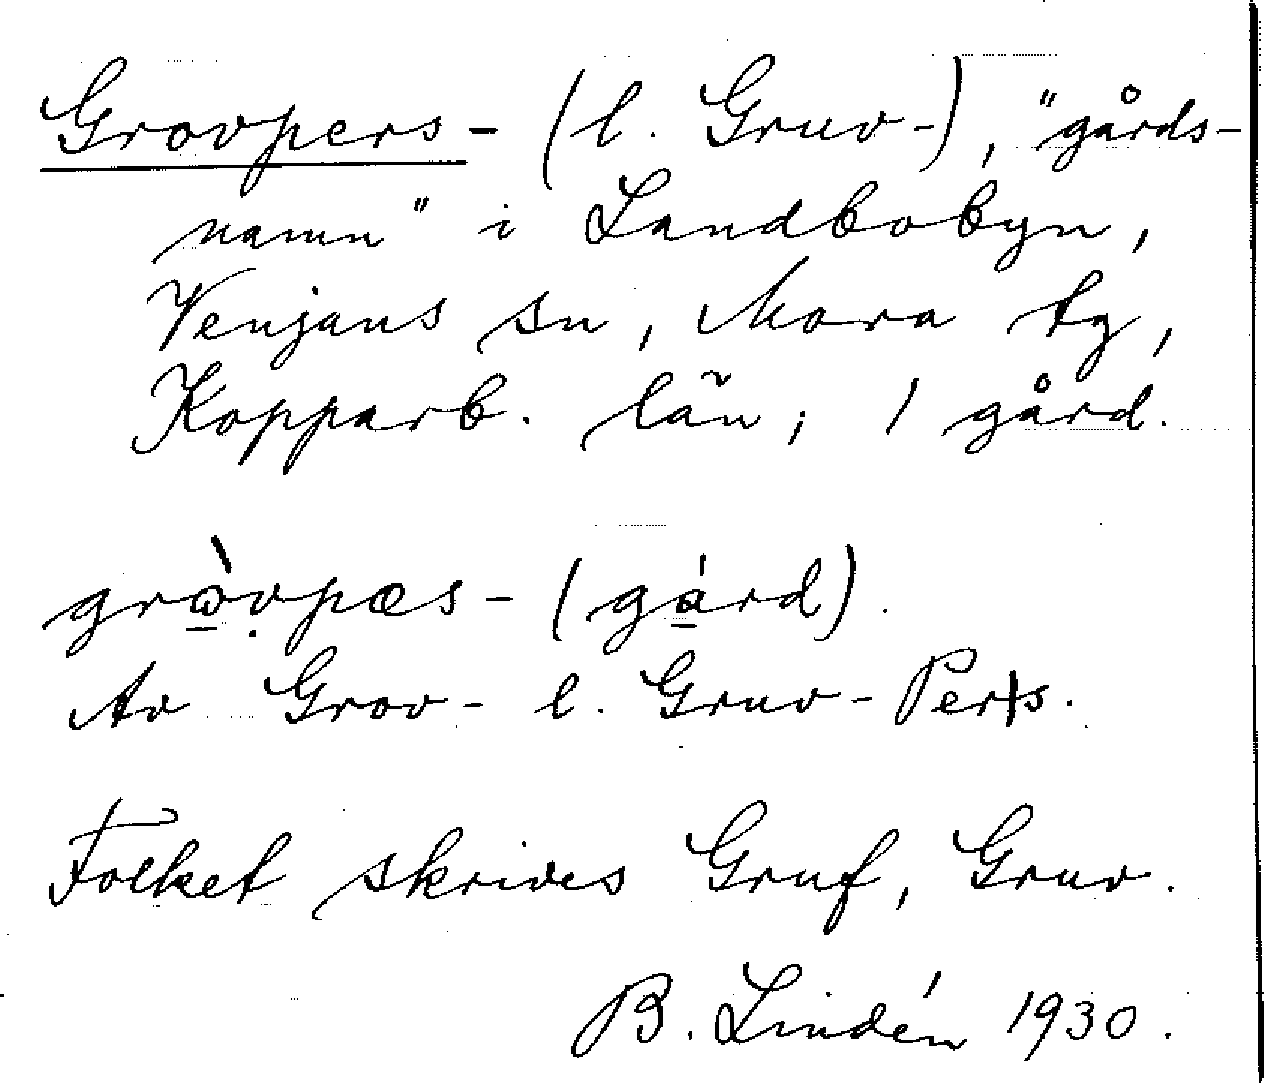 Grovpers- (l. Gruv-), "gårds-
namn" i Landbobyn,
Venjans sn, Mora tg,
Kopparb. län; 1 gård.
grὼ̱ṿpæs- (gá̱rd).
Av Grov- l. Gruv-Pers.
Folket skrives Gruf, Gruv.
B. Lindén 1930.